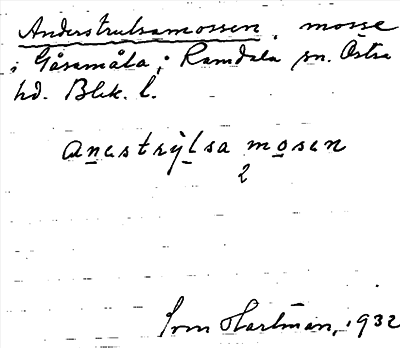 Anderstrulsamossen, mosse
i Gåsamåla, Ramdala sn. Östra
hd. Blek. l.
anestrỳlsa mosen
2
Ivm Hartman, 1932